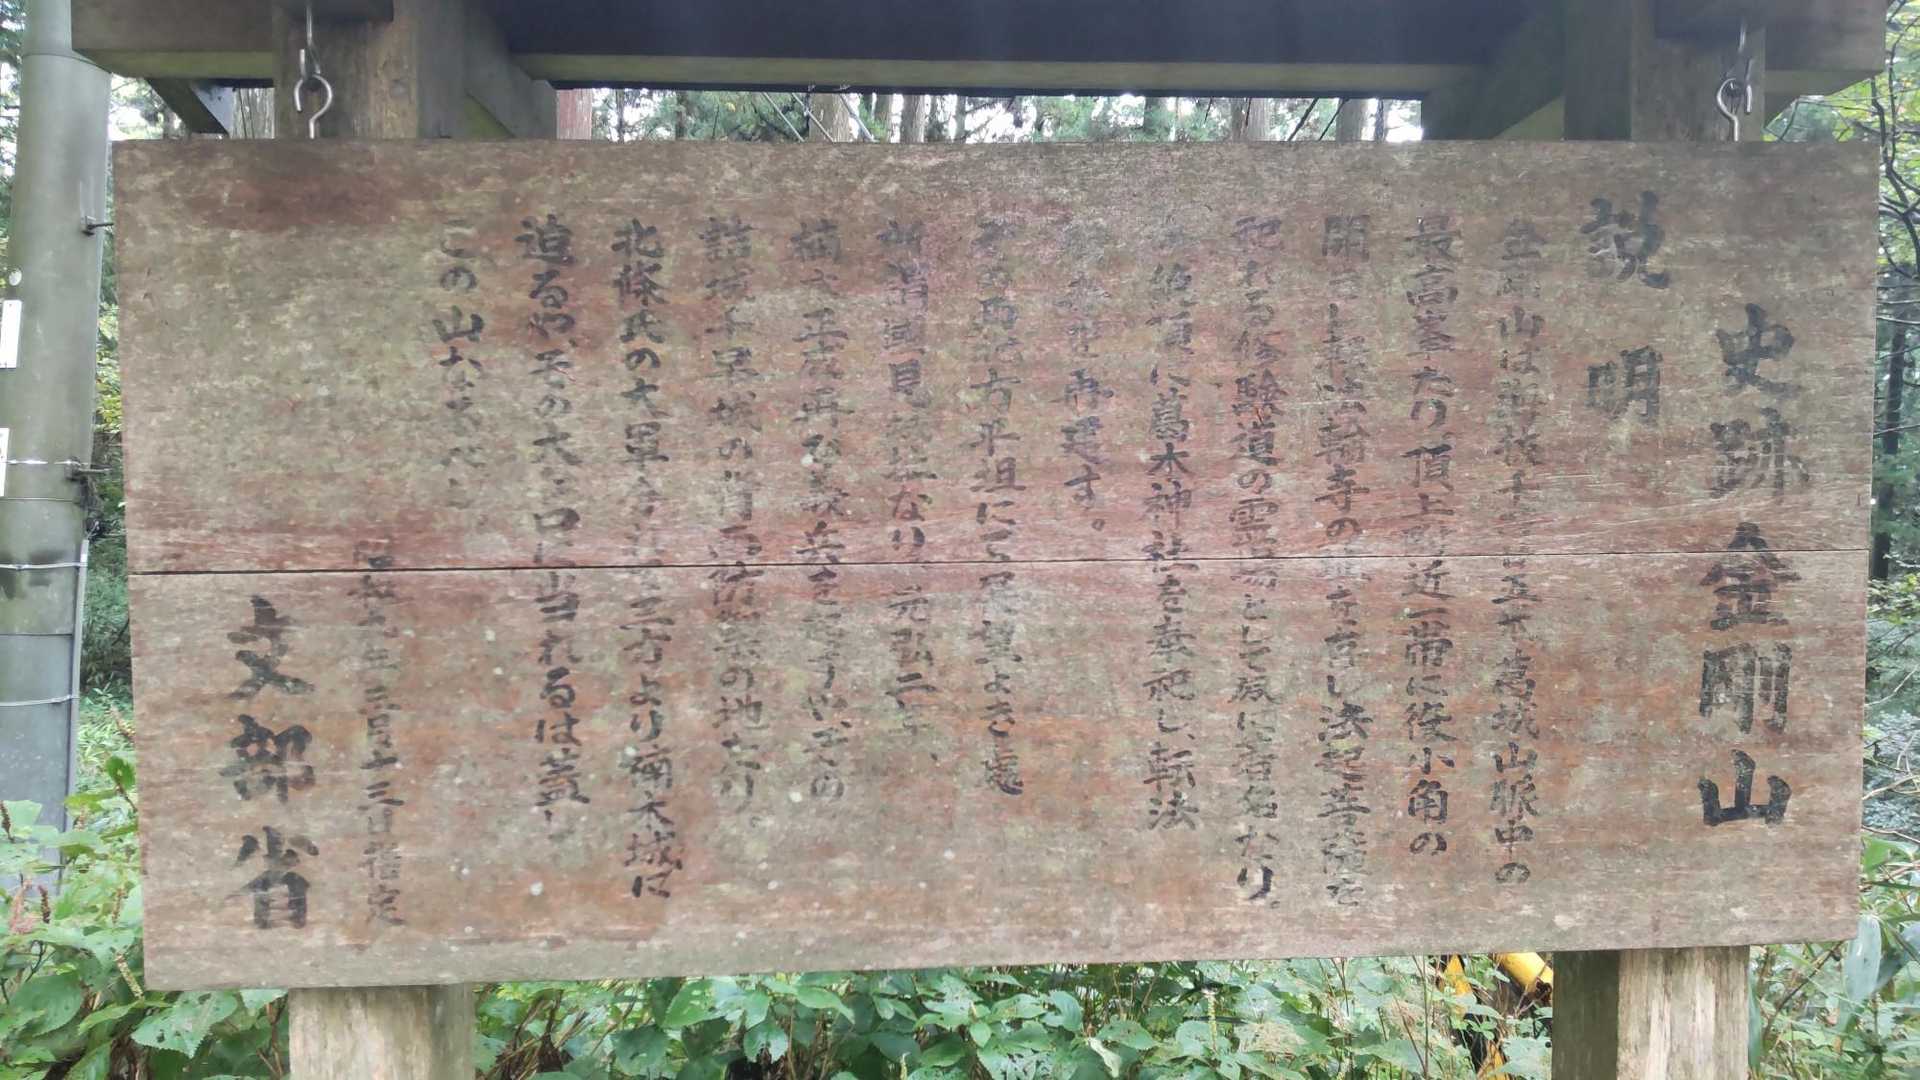 史跡 金剛山
説明
金剛山は海抜千百五十米葛城山脈中の
最高峯たり。頂上附近一帯に役小角の
開きし転法輪寺の を有し法起菩薩を
祀れる修験道の霊場として夙に著名なり。
絶頂に葛木神社を奉祀し、転法
再建す。
その西北方平坦にて眺望よき處
国見城址なり。元弘二年、
楠大正成再び義兵を挙ぐや、その
詰城千早城の背面防禦の地たり。
北條氏の大軍 三方より楠木城に
迫るや、その大 口に当れるは蓋し
この山なるべし
昭和九年三月十三日指定
文部省